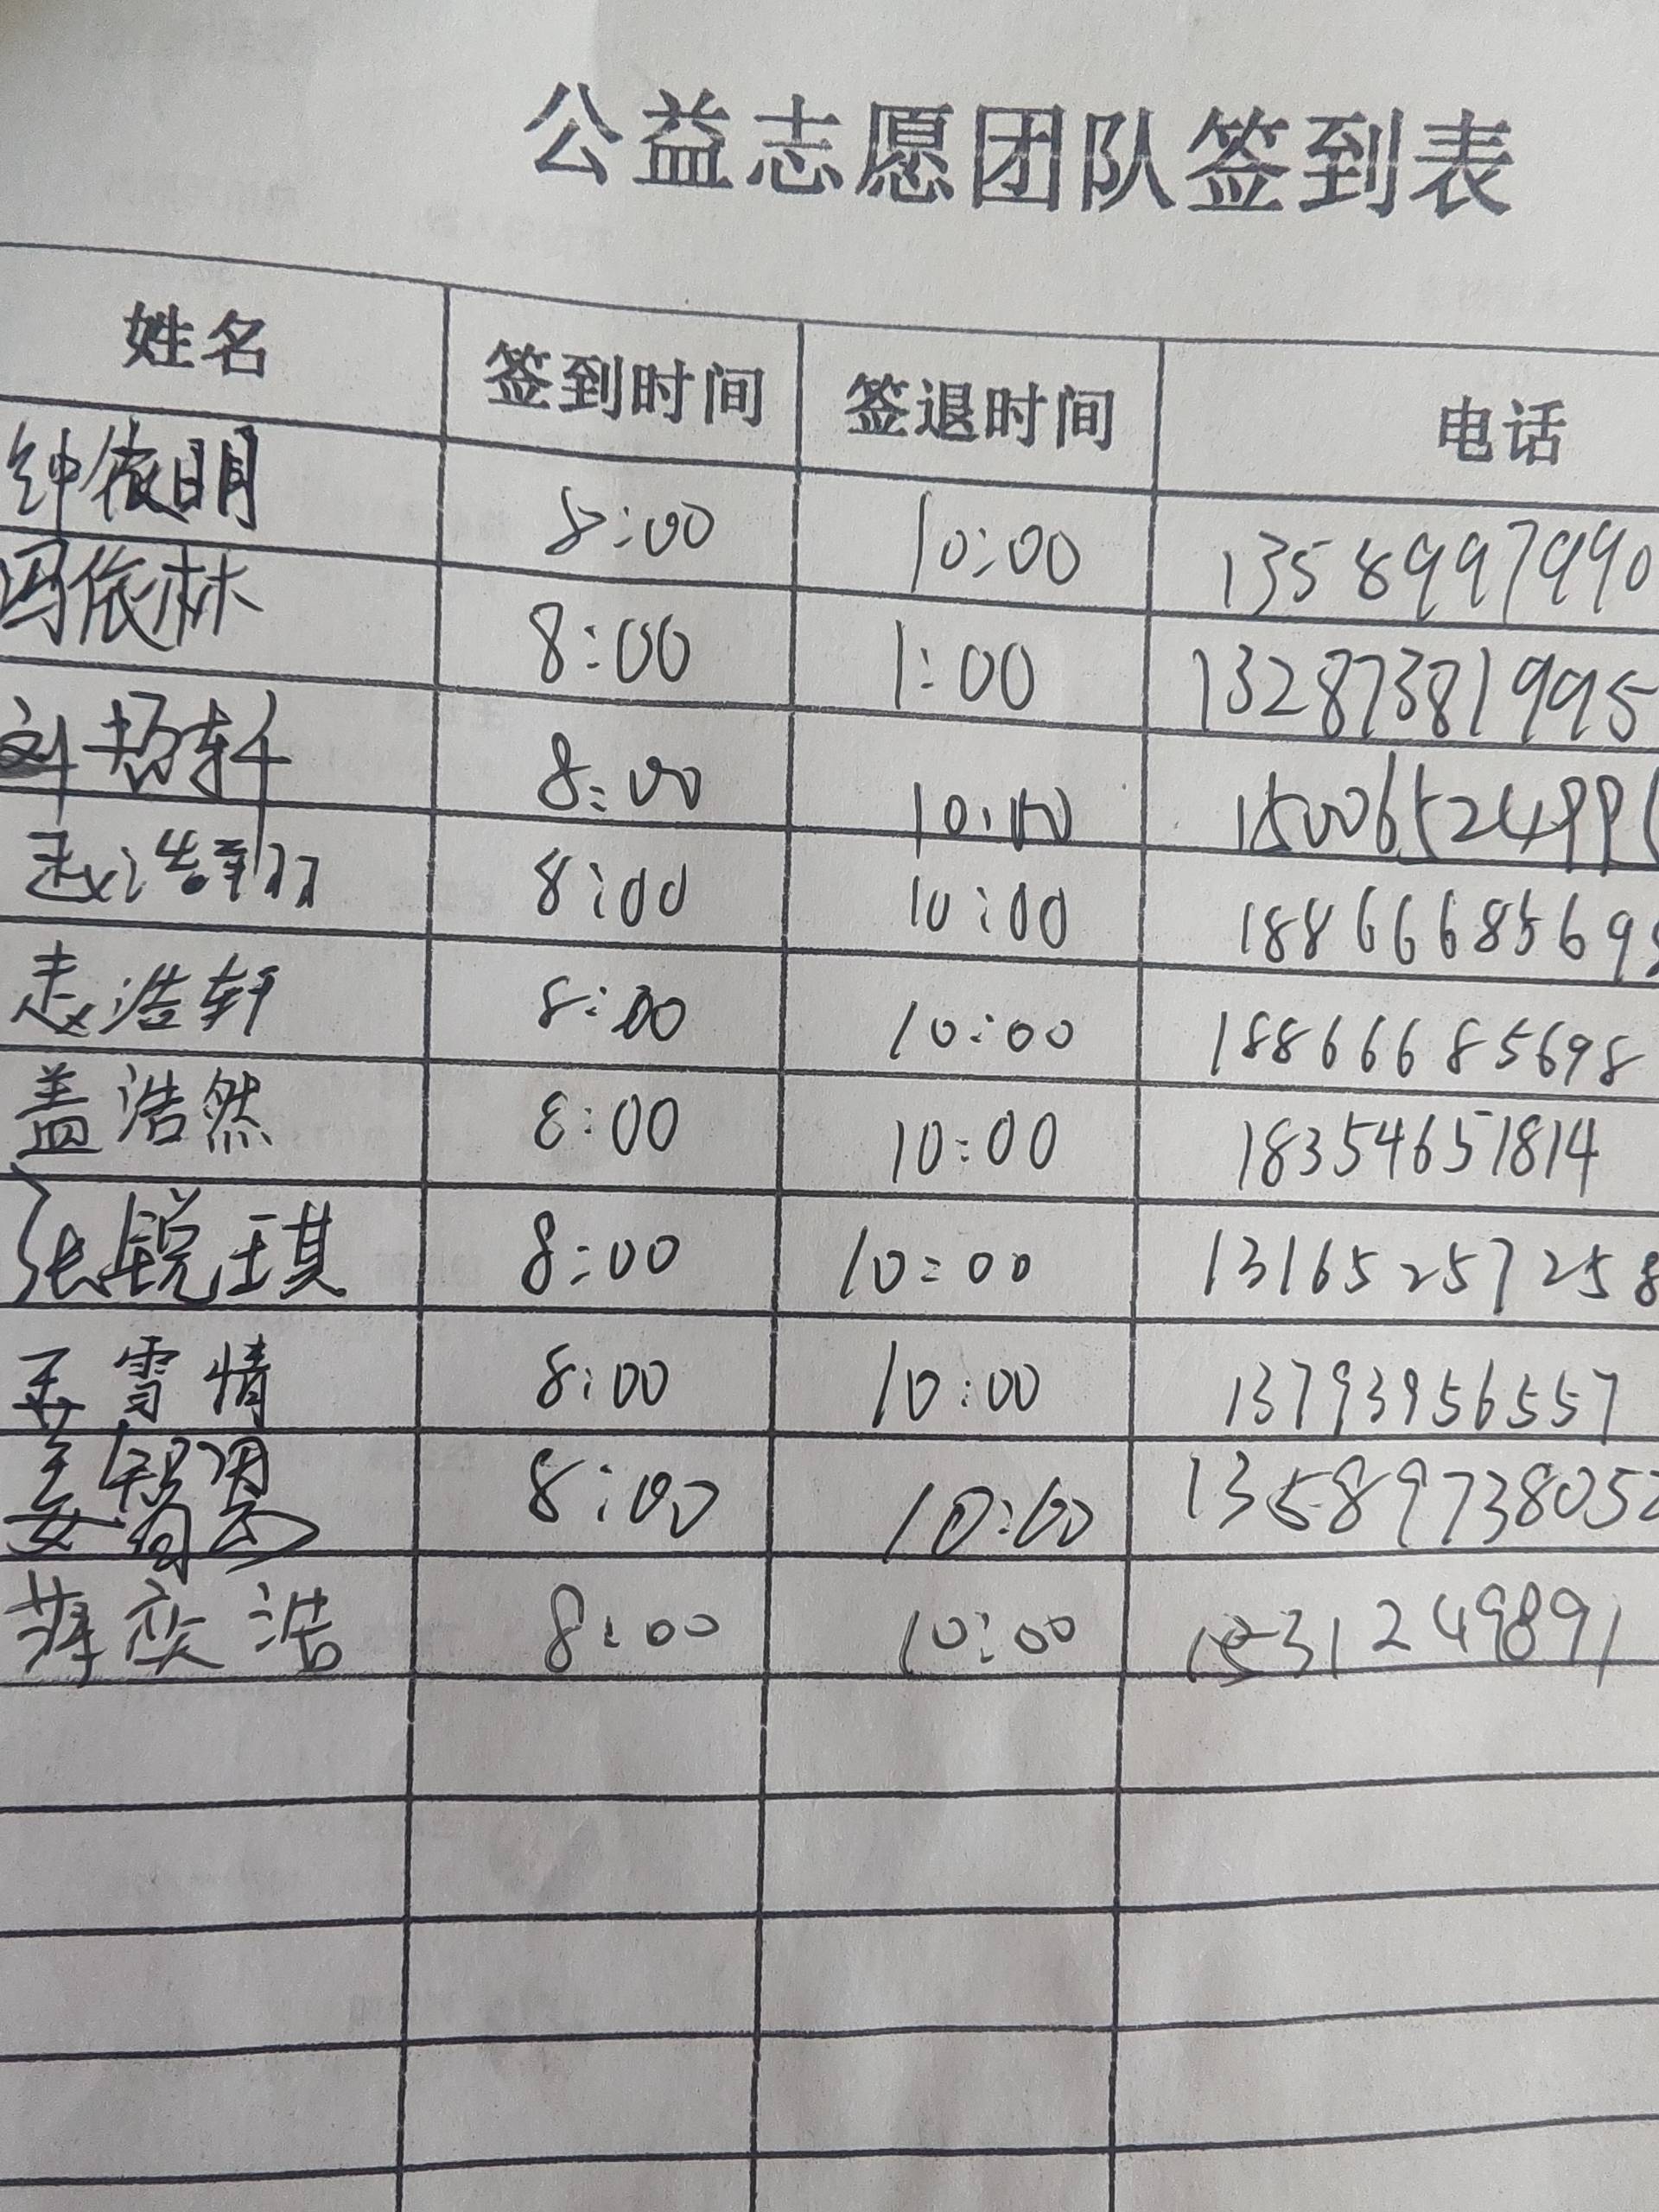 公益志愿团队签到表
姓名 签到时间 签退时间 电话
钟依明 8:00 10:00 13589997990
冯依林 8:00 1:00 132873819995
刘 轩 8:00 10:00 1500652499
赵浩翔 8:00 10:00 1886668569
赵浩轩 8:00 10:00 18866685698
盖浩然 8:00 10:00 18354651814
张锐琪 8:00 10:00 13165257258
王雪情 8:00 10:00 13793956557
姜智恩 8:00 10:00 13589738052
薛奕浩 8:00 10:00 1531249891